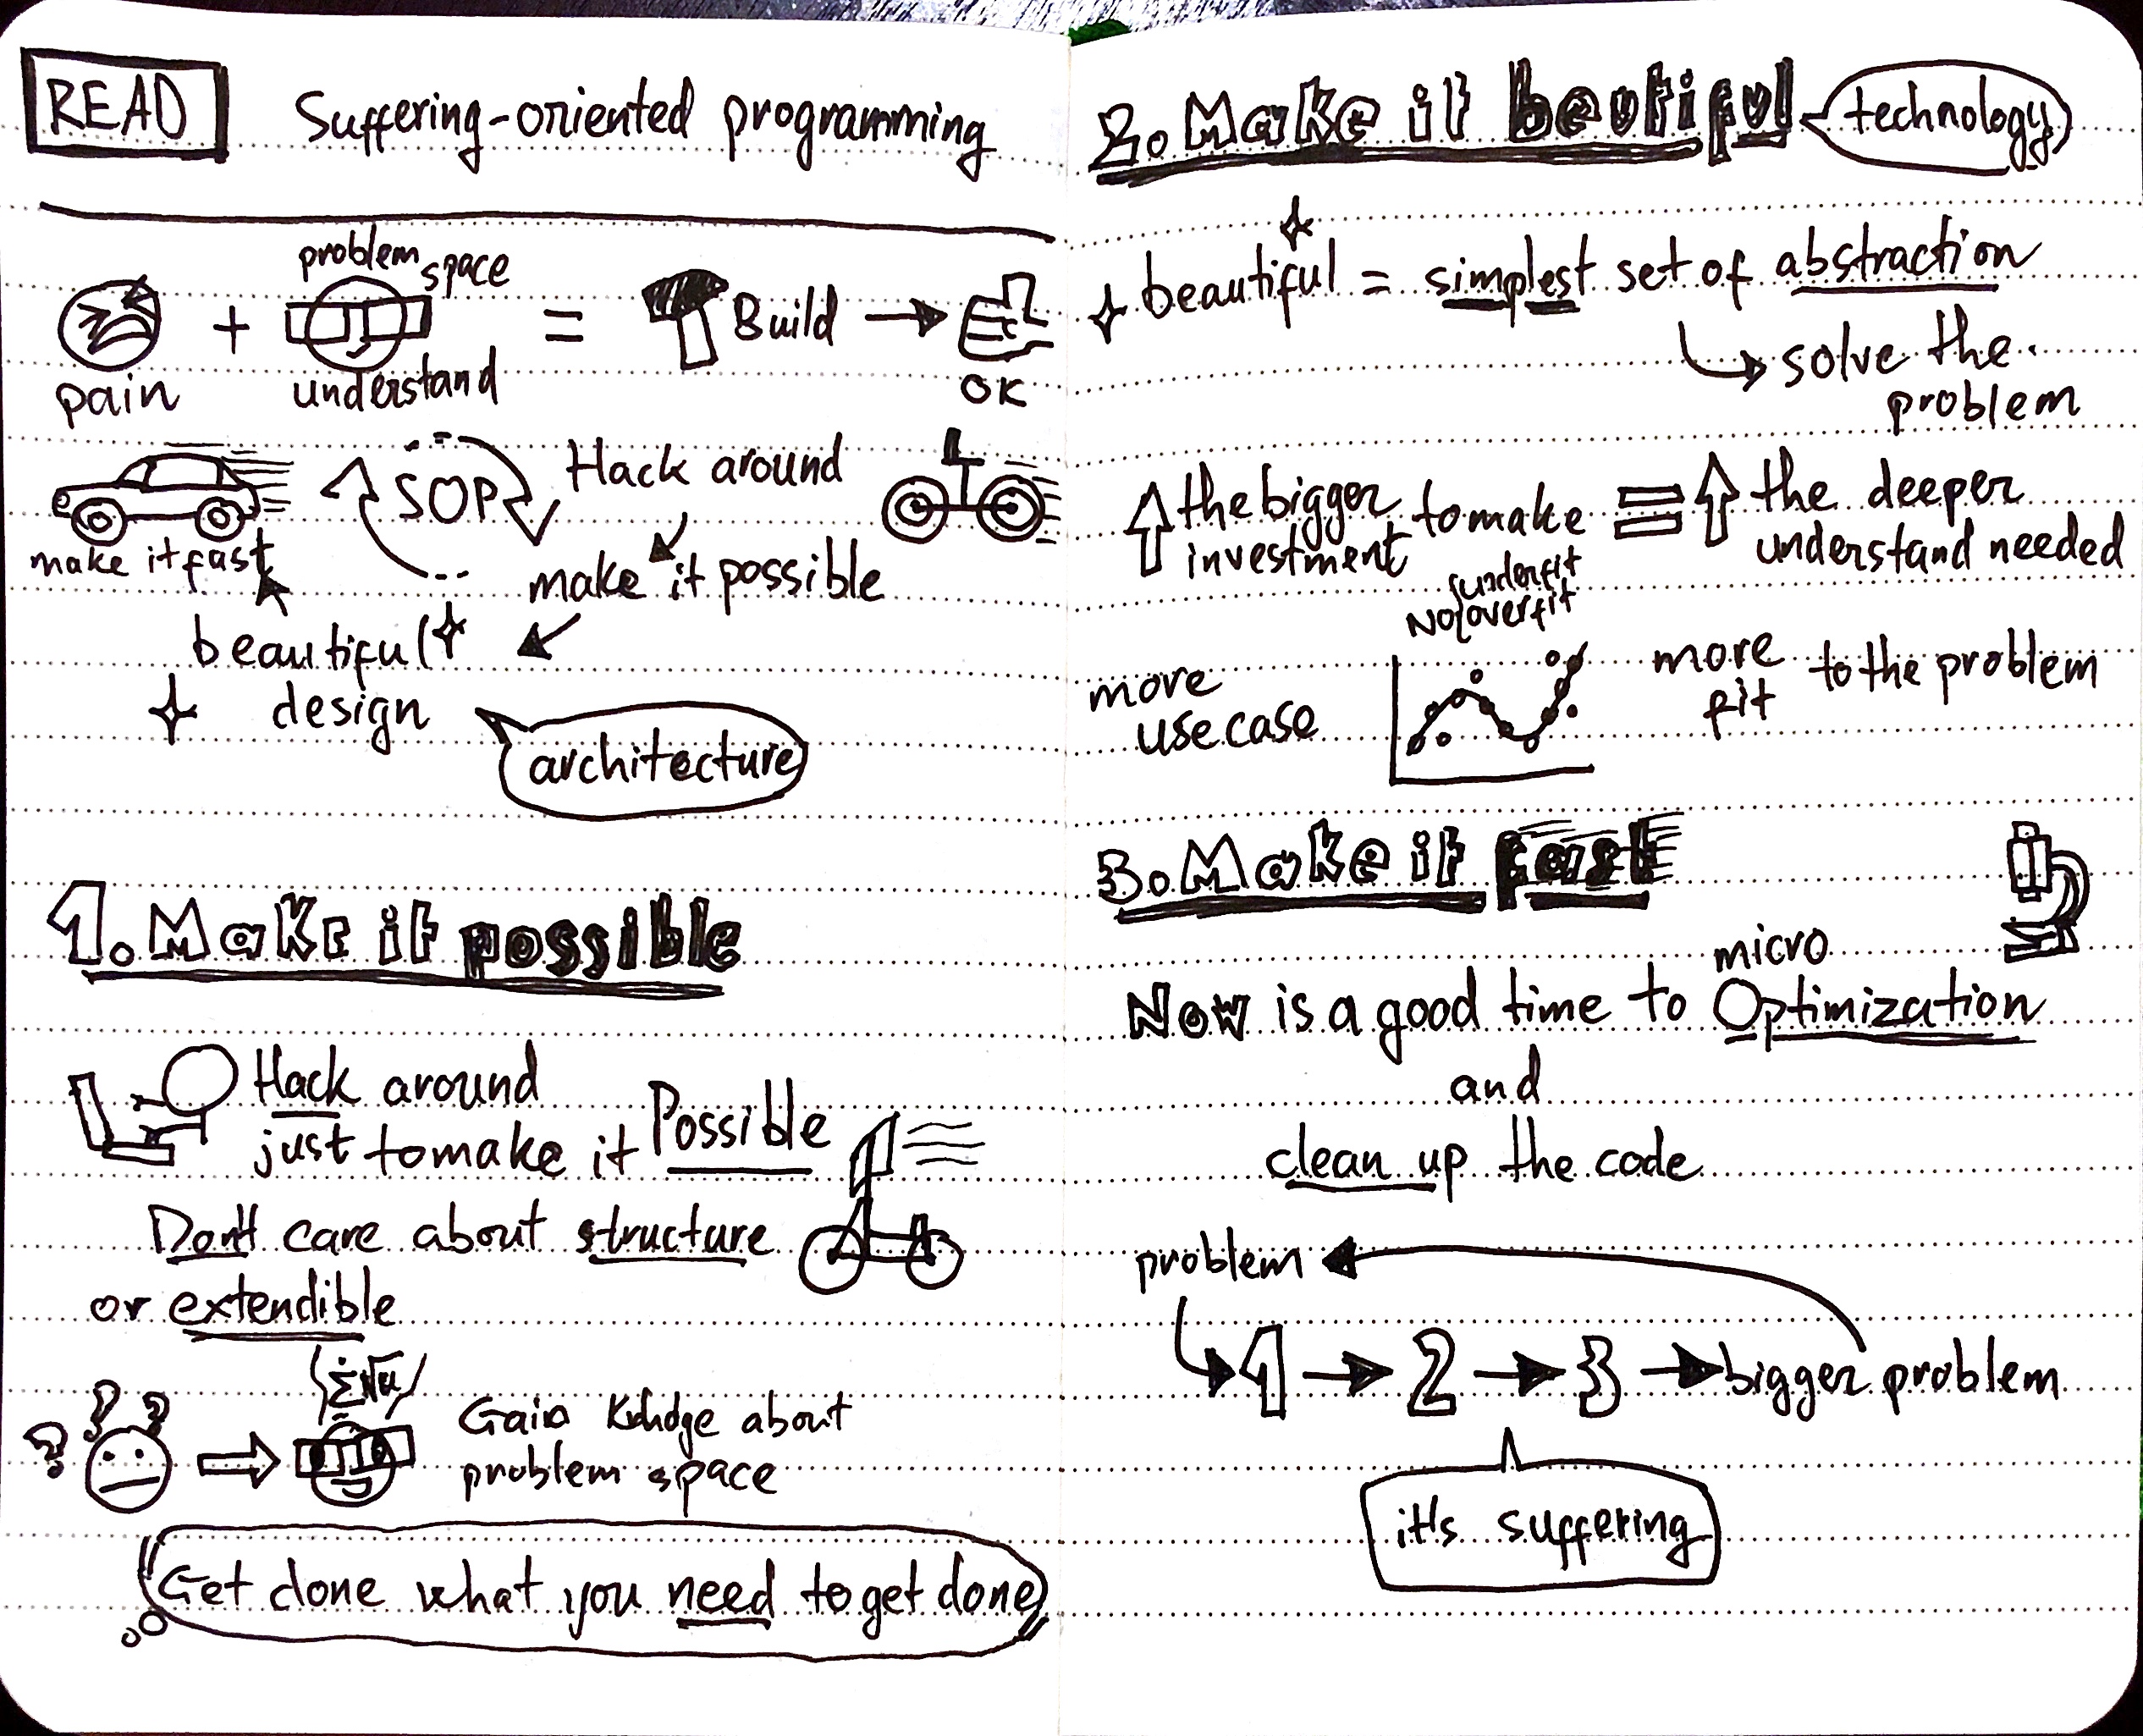 READ
Suffering-oriented programming
problem space
pain + understand = Build → OK
SOP
Hack around
make it possible
beautiful
design
architecture
make it fast
1. Make it possible
Hack around
just to make it Possible
Don't care about structure
or extendible
? ? ?
Gain about
problem space
Get done what you need to get done
2. Make it beutiful
technology
beautiful = simplest set of abstraction
solve the
problem
the bigger investment to make = the deeper understand needed
No underfit
overfit
more
use case
more
fit
to the problem
3. Make it fast
micro
Now is a good time to Optimization
and
clean up the code
problem
1 → 2 → 3 → bigger problem
it's suffering